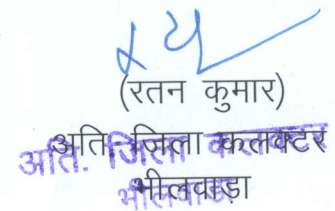 (रतन कुमार)
अति. जिला कलक्टर
भीलवाड़ा
अति. जिला कलक्टर
भीलवाड़ा